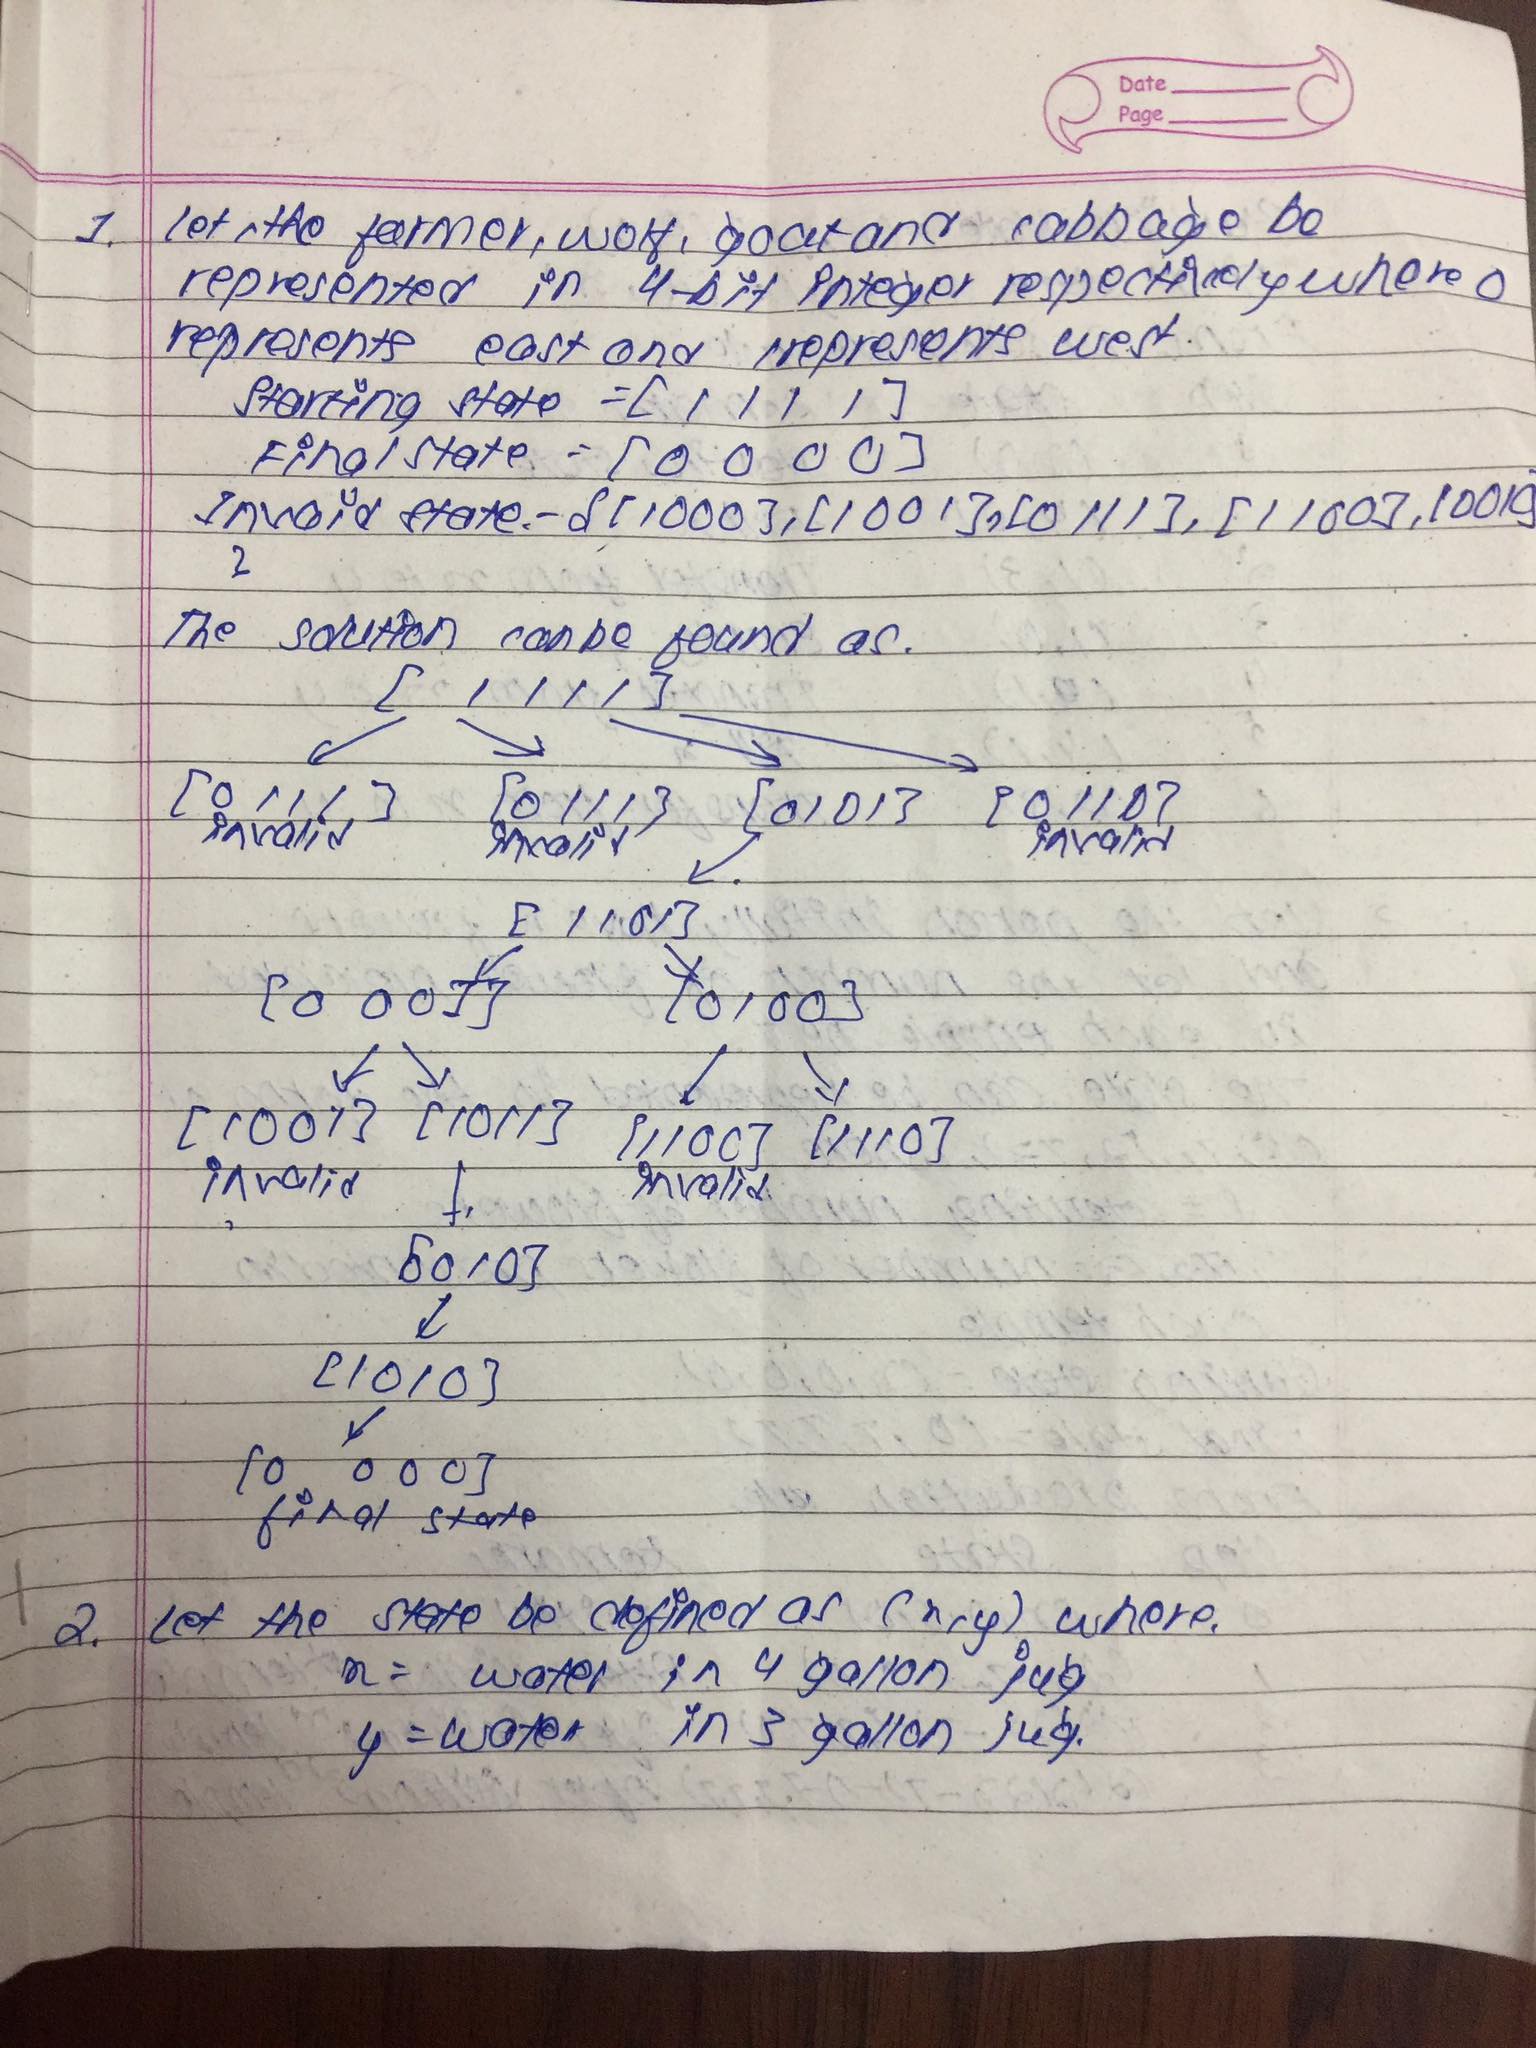 Date
Page
1. Let, the farmer, wolf, goat and cabbage be
represented in 4-bit integer respectively where 0
represents east and 1 represents west.
Starting state = [1 1 1 1]
Final state = [0 0 0 0]
Invalid state = {[1000], [1001], [0111], [1100],
}
The solution can be found as.
[1111]
[0111] [0111] [0101] [0110]
invalid invalid invalid
[1101]
[0001] [0100]
[1001] [1011] [1100] [1110]
invalid invalid
[0010]
[1010]
[0 000]
final state
2. Let the state be defined as (x,y) where.
x = water in 4 gallon jug
y = water in 3 gallon jug.